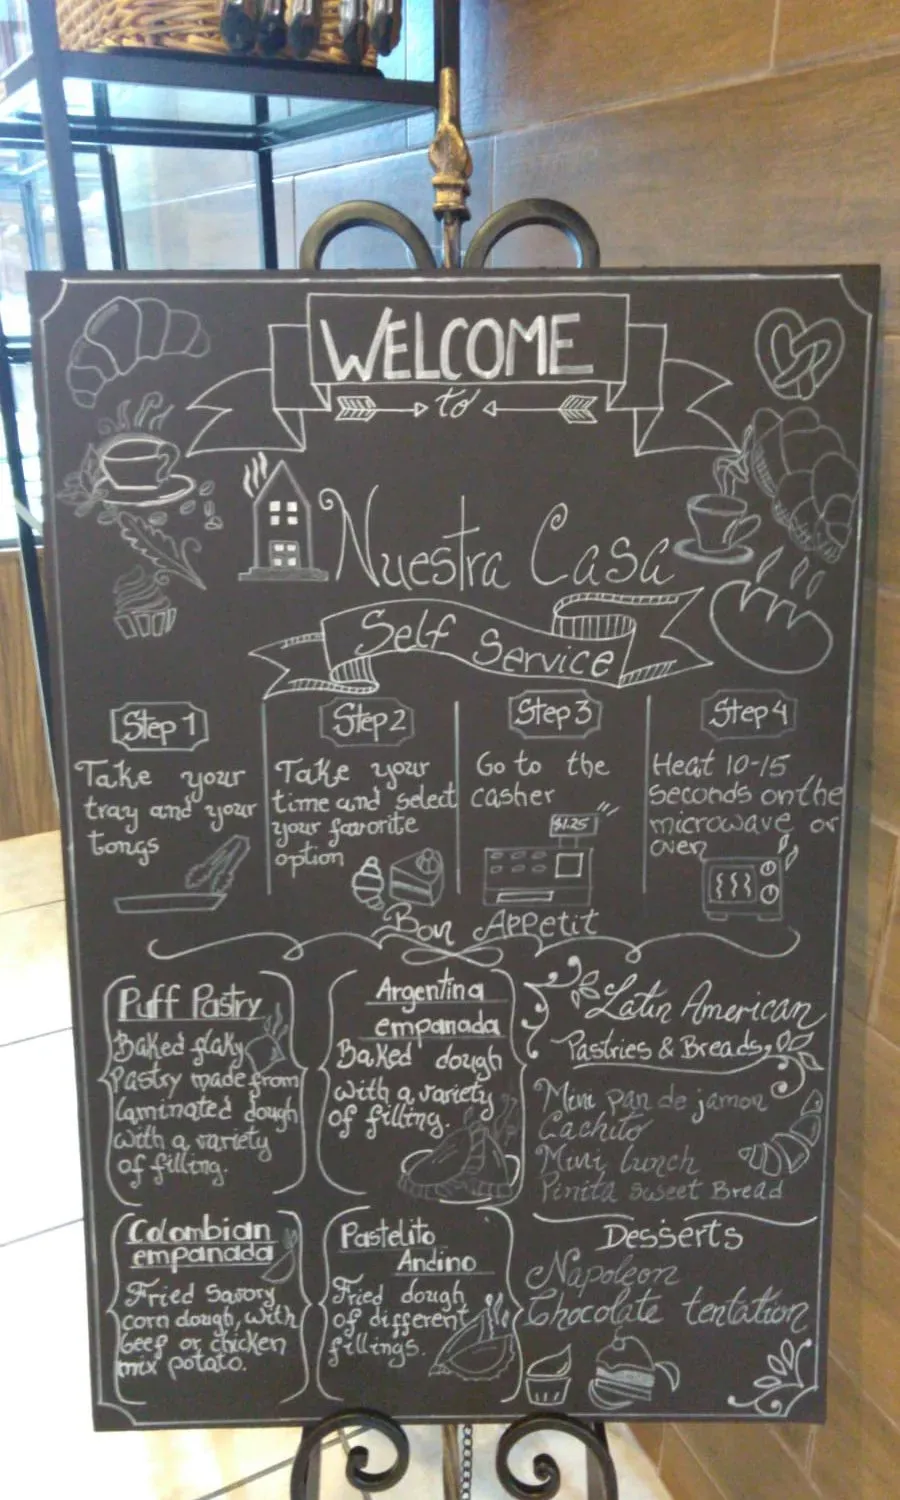 WELCOME
to
Nuestra Casa
Self Service
Step 1
Take your
tray and your
tongs
Step 2
Take your
time and select
your favorite
option
Step 3
Go to the
casher
$1.25
Step 4
Heat 10-15
seconds on the
microwave or
oven
Bon Appetit
Puff Pastry
Baked flaky
Pastry made from
laminated dough
with a variety
of filling.
Argentina
empanada
Baked dough
with a variety
of filling.
Latin American
Pastries & Breads
Mini pan de jamon
Cachito
Mini lunch
Pinita sweet Bread
Colombian
empanada
Fried Savory
corn dough, with
beef or chicken
mix potato.
Pastelito
Andino
Fried dough
of different
fillings.
Desserts
Napoleon
Chocolate tentation